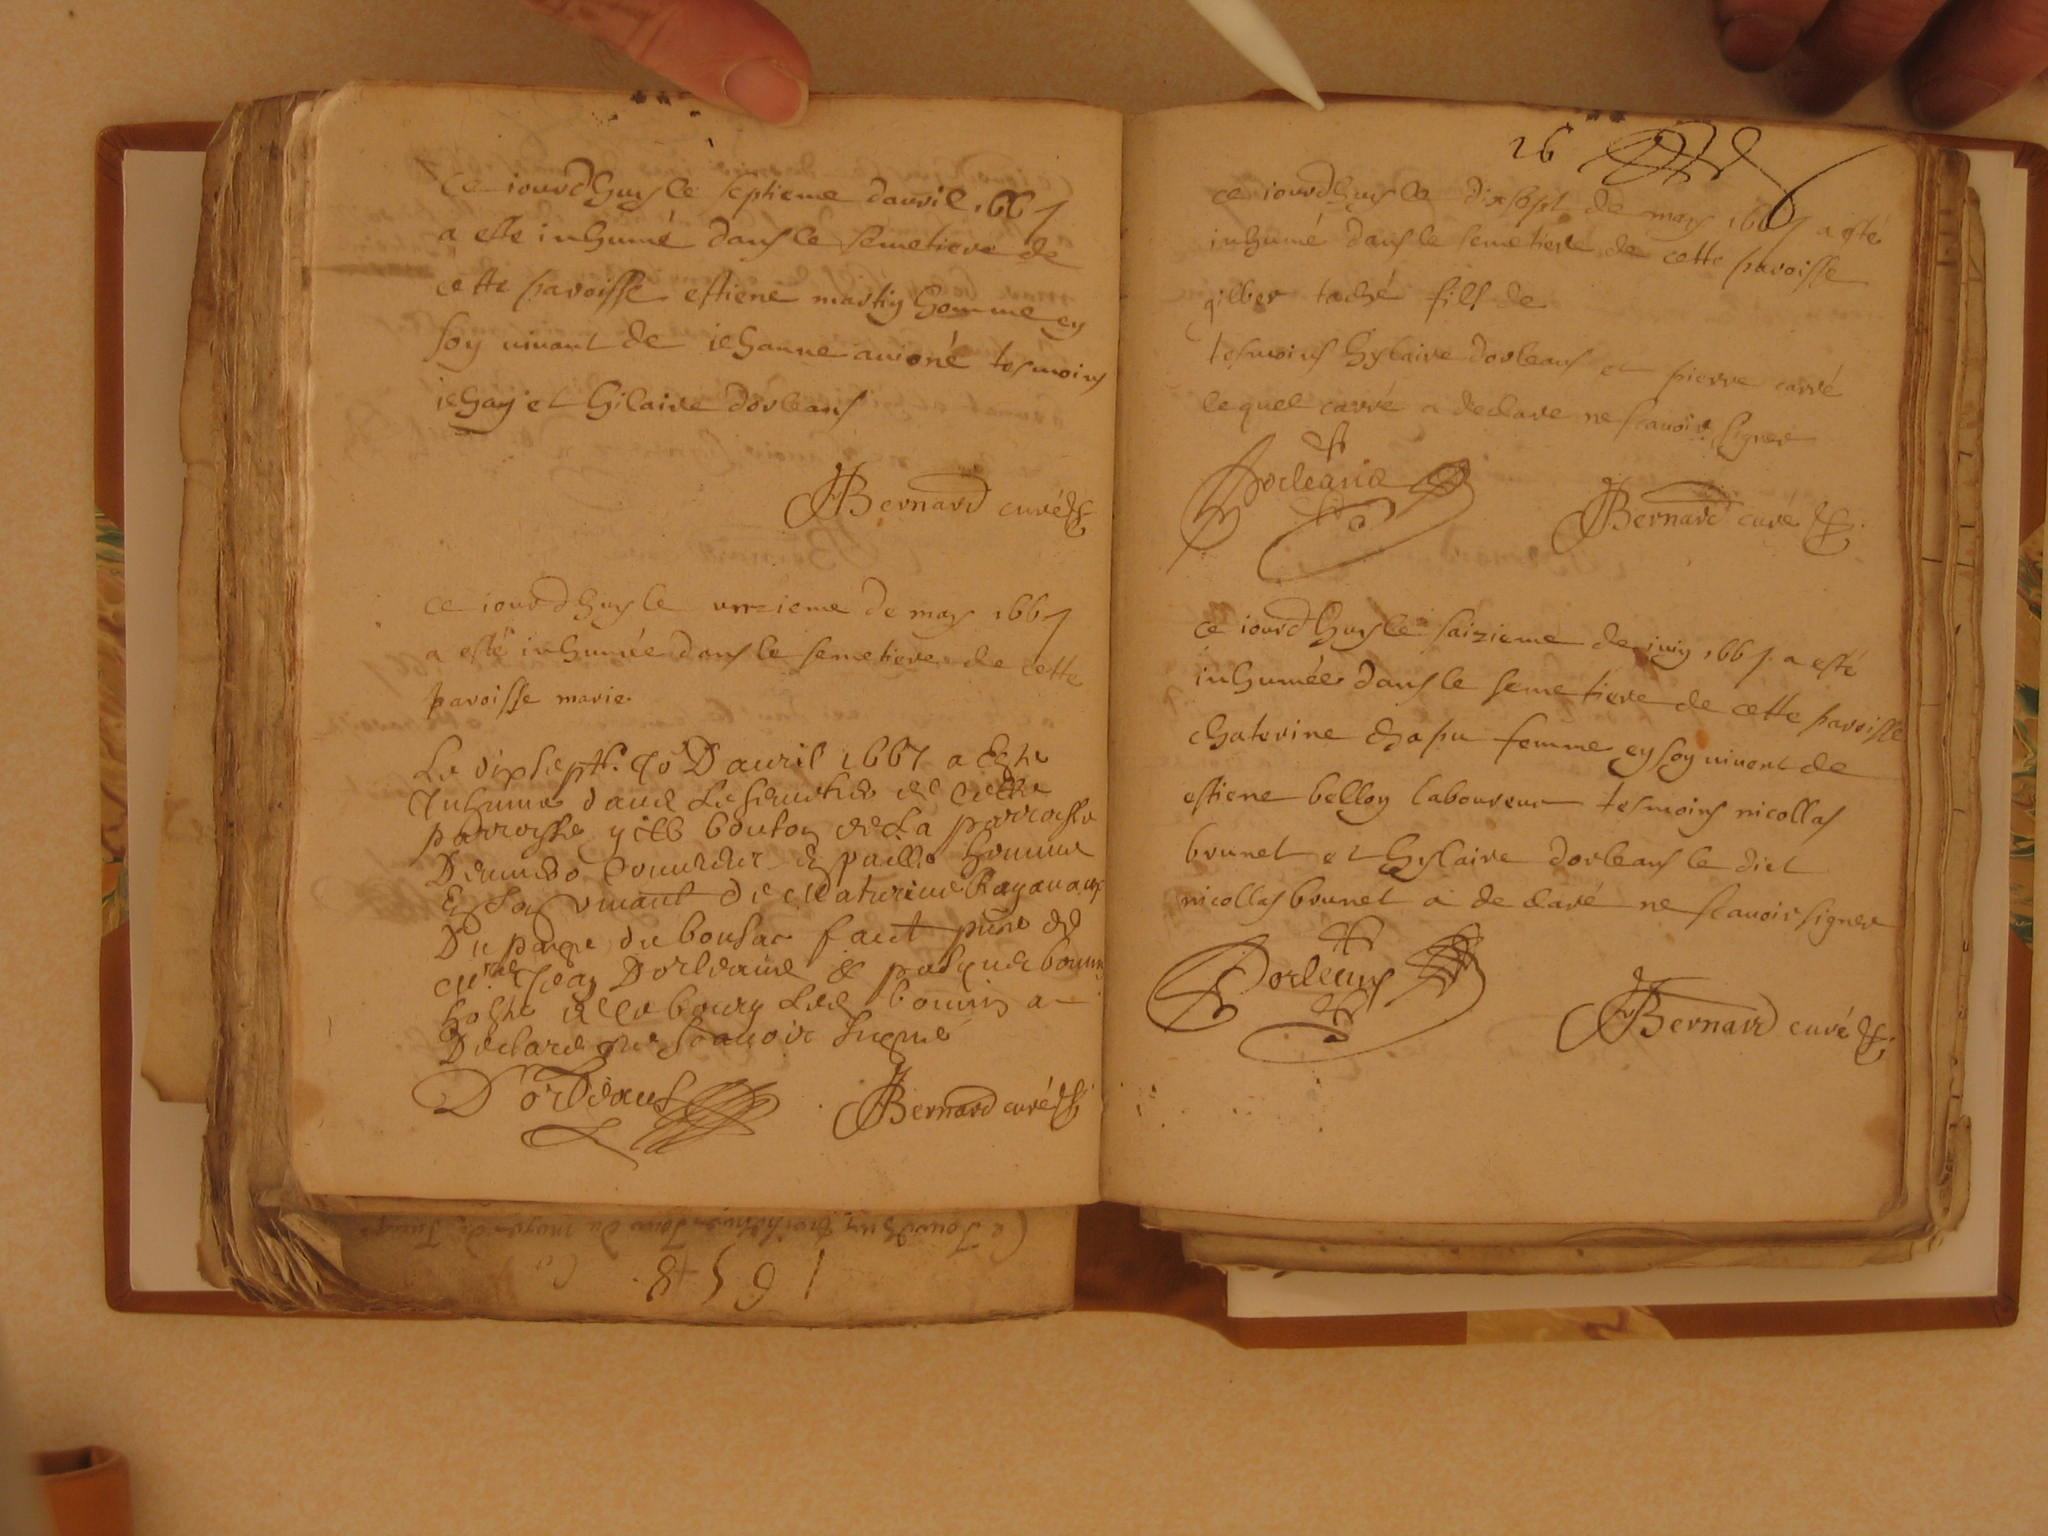 ce iourdhuy le septieme dauril 1667
a este inhumé dans le semetiere de
cette paroisse estiene martin homme en
son uiuant de iehanne auioné tesmoins
iehan et hilaire dorleans
JBernard curé
ce iourdhuy le unzieme de may 1667
a esté inhumée dans le semetiere de cette
paroisse marie
Le dixsept.e Jo.r Dauril 1667 a Este
Inhumé dans Le semetier de Cette
parroisse gilb bouton de La parroisse
homme
En son viuant de Maturine
Du du bousac faict pnce de
Jean Dorleans & bouuin
hoste de Ce bourg Led bouuin a
Declaré ne scauoir signé
D'orleans
JBernard curé
26
ce iourdhuy le dixsept de may 1667 a esté
inhumé dans le semetiere de cette paroisse
gilber taché fils de
tesmoins hylaire dorleans et pierre carré
lequel carré a declare ne scauoir signer
Dorleans
JBernard curé
ce iourdhuy le saizieme de iuin 1667 a esté
inhumée dans le semetiere de cette paroisse
chaterine chapu femme en son uiuent de
estiene belloy laboureur tesmoins nicollas
brunet et hylaire dorleans le dict
nicollas brunet a declaré ne scauoir signer
Dorleans
JBernard curé
1658